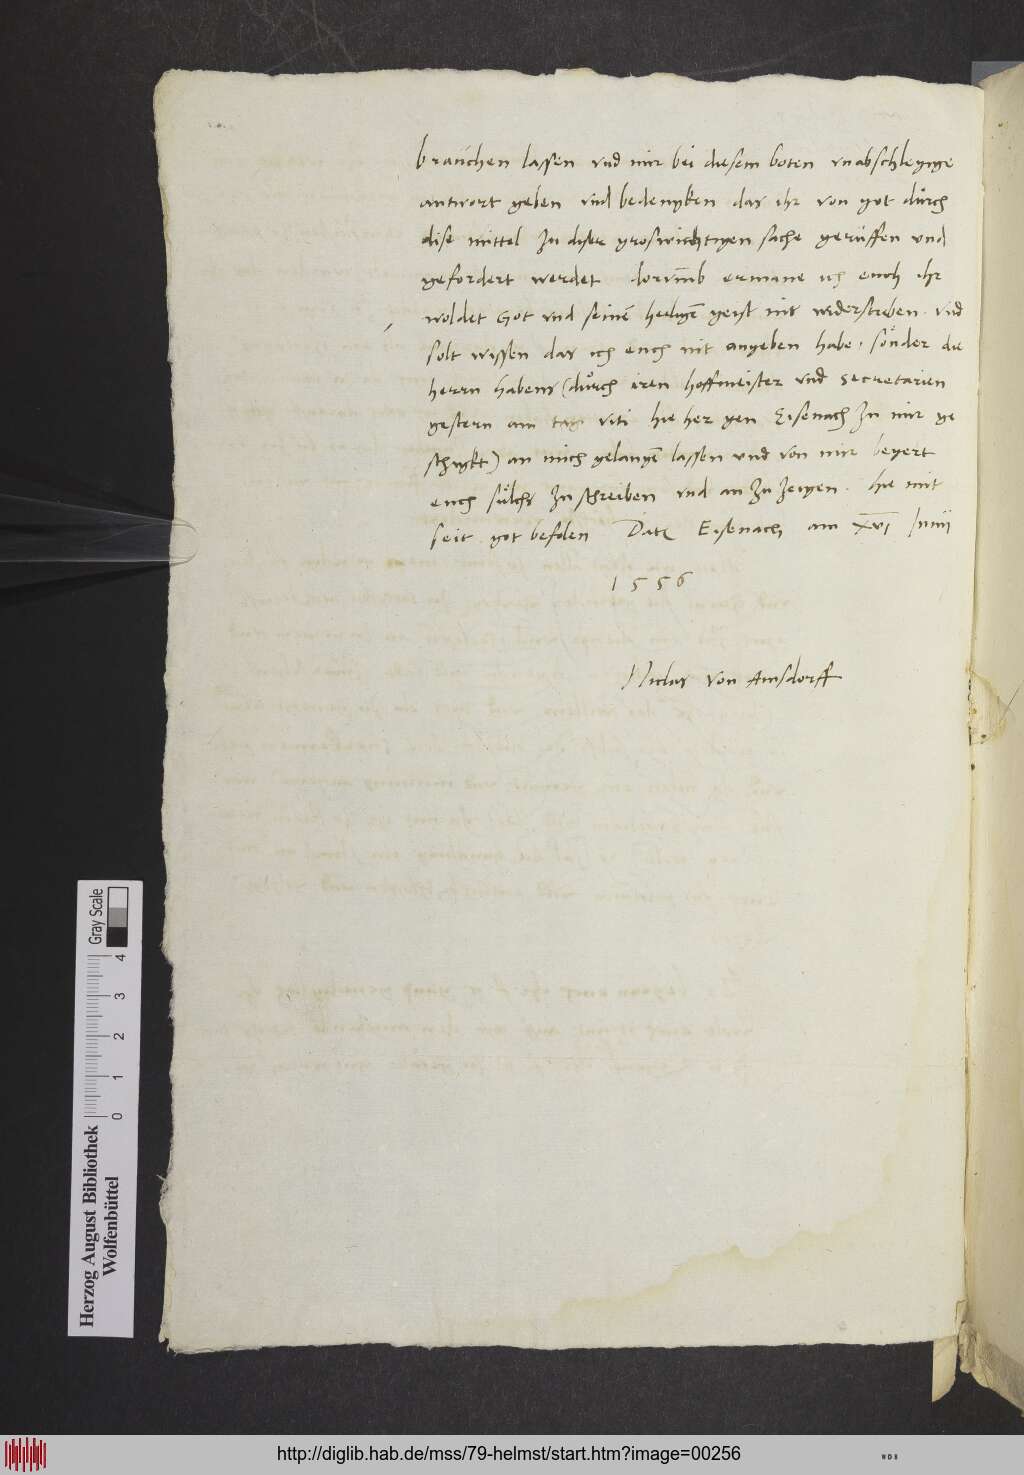 brauchen lassen vnd mir bei diesem boten vnabschlegige
antwort geben vnd bedengken das ihr von got durch
dise mittel zu diser groswichtigen sache geruffen vnd
gefordert werdet dorumb ermane ich euch ihr
woldet Got vnd seinem heiligen geist nit widerstreben. vnd
solt wissen das ich euch nit angeben habe. sonder die
herrn habens (durch iren hoffmeister vnd secretarien
gestern am tag viti hie her gen Eisenach zu mir ge
schigkt) an mich gelangen lassen vnd von mir begert
euch sulchs zu schreiben vnd an zu zeigen. hie mit
seit got befolen Datum Eisenach am xvi Junii
1556
Niclas von Amsdorff
Herzog August Bibliothek
Wolfenbüttel
0 1 2 3 4
Gray Scale
http://diglib.hab.de/mss/79-helmst/start.htm?image=00256
WDB